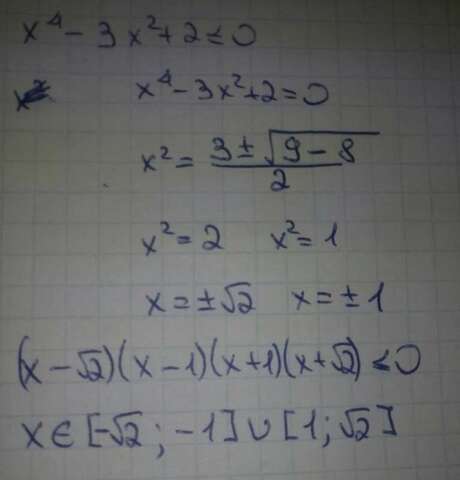 x⁴ − 3x² + 2 ≤ 0
x⁴ − 3x² + 2 = 0
x² = (3 ± √(9 − 8)) / 2
x² = 2 x² = 1
x = ±√2 x = ±1
(x − √2)(x − 1)(x + 1)(x + √2) ≤ 0
x ∈ [−√2; −1] ∪ [1; √2]